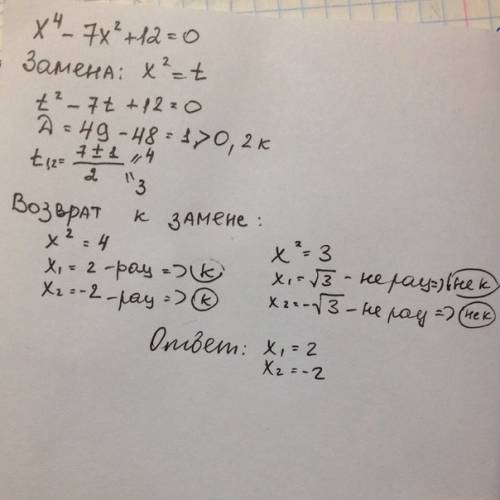 x⁴ - 7x² + 12 = 0
Замена: x² = t
t² - 7t + 12 = 0
Д = 49 - 48 = 1 > 0, 2 к
t₁,₂ = (7 ± 1)/2 = 4
= 3
Возврат к замене:
x² = 4
x₁ = 2 - рац => к
x₂ = -2 - рац => к
x² = 3
x₁ = √3 - не рац => не к
x₂ = -√3 - не рац => не к
Ответ: x₁ = 2
x₂ = -2